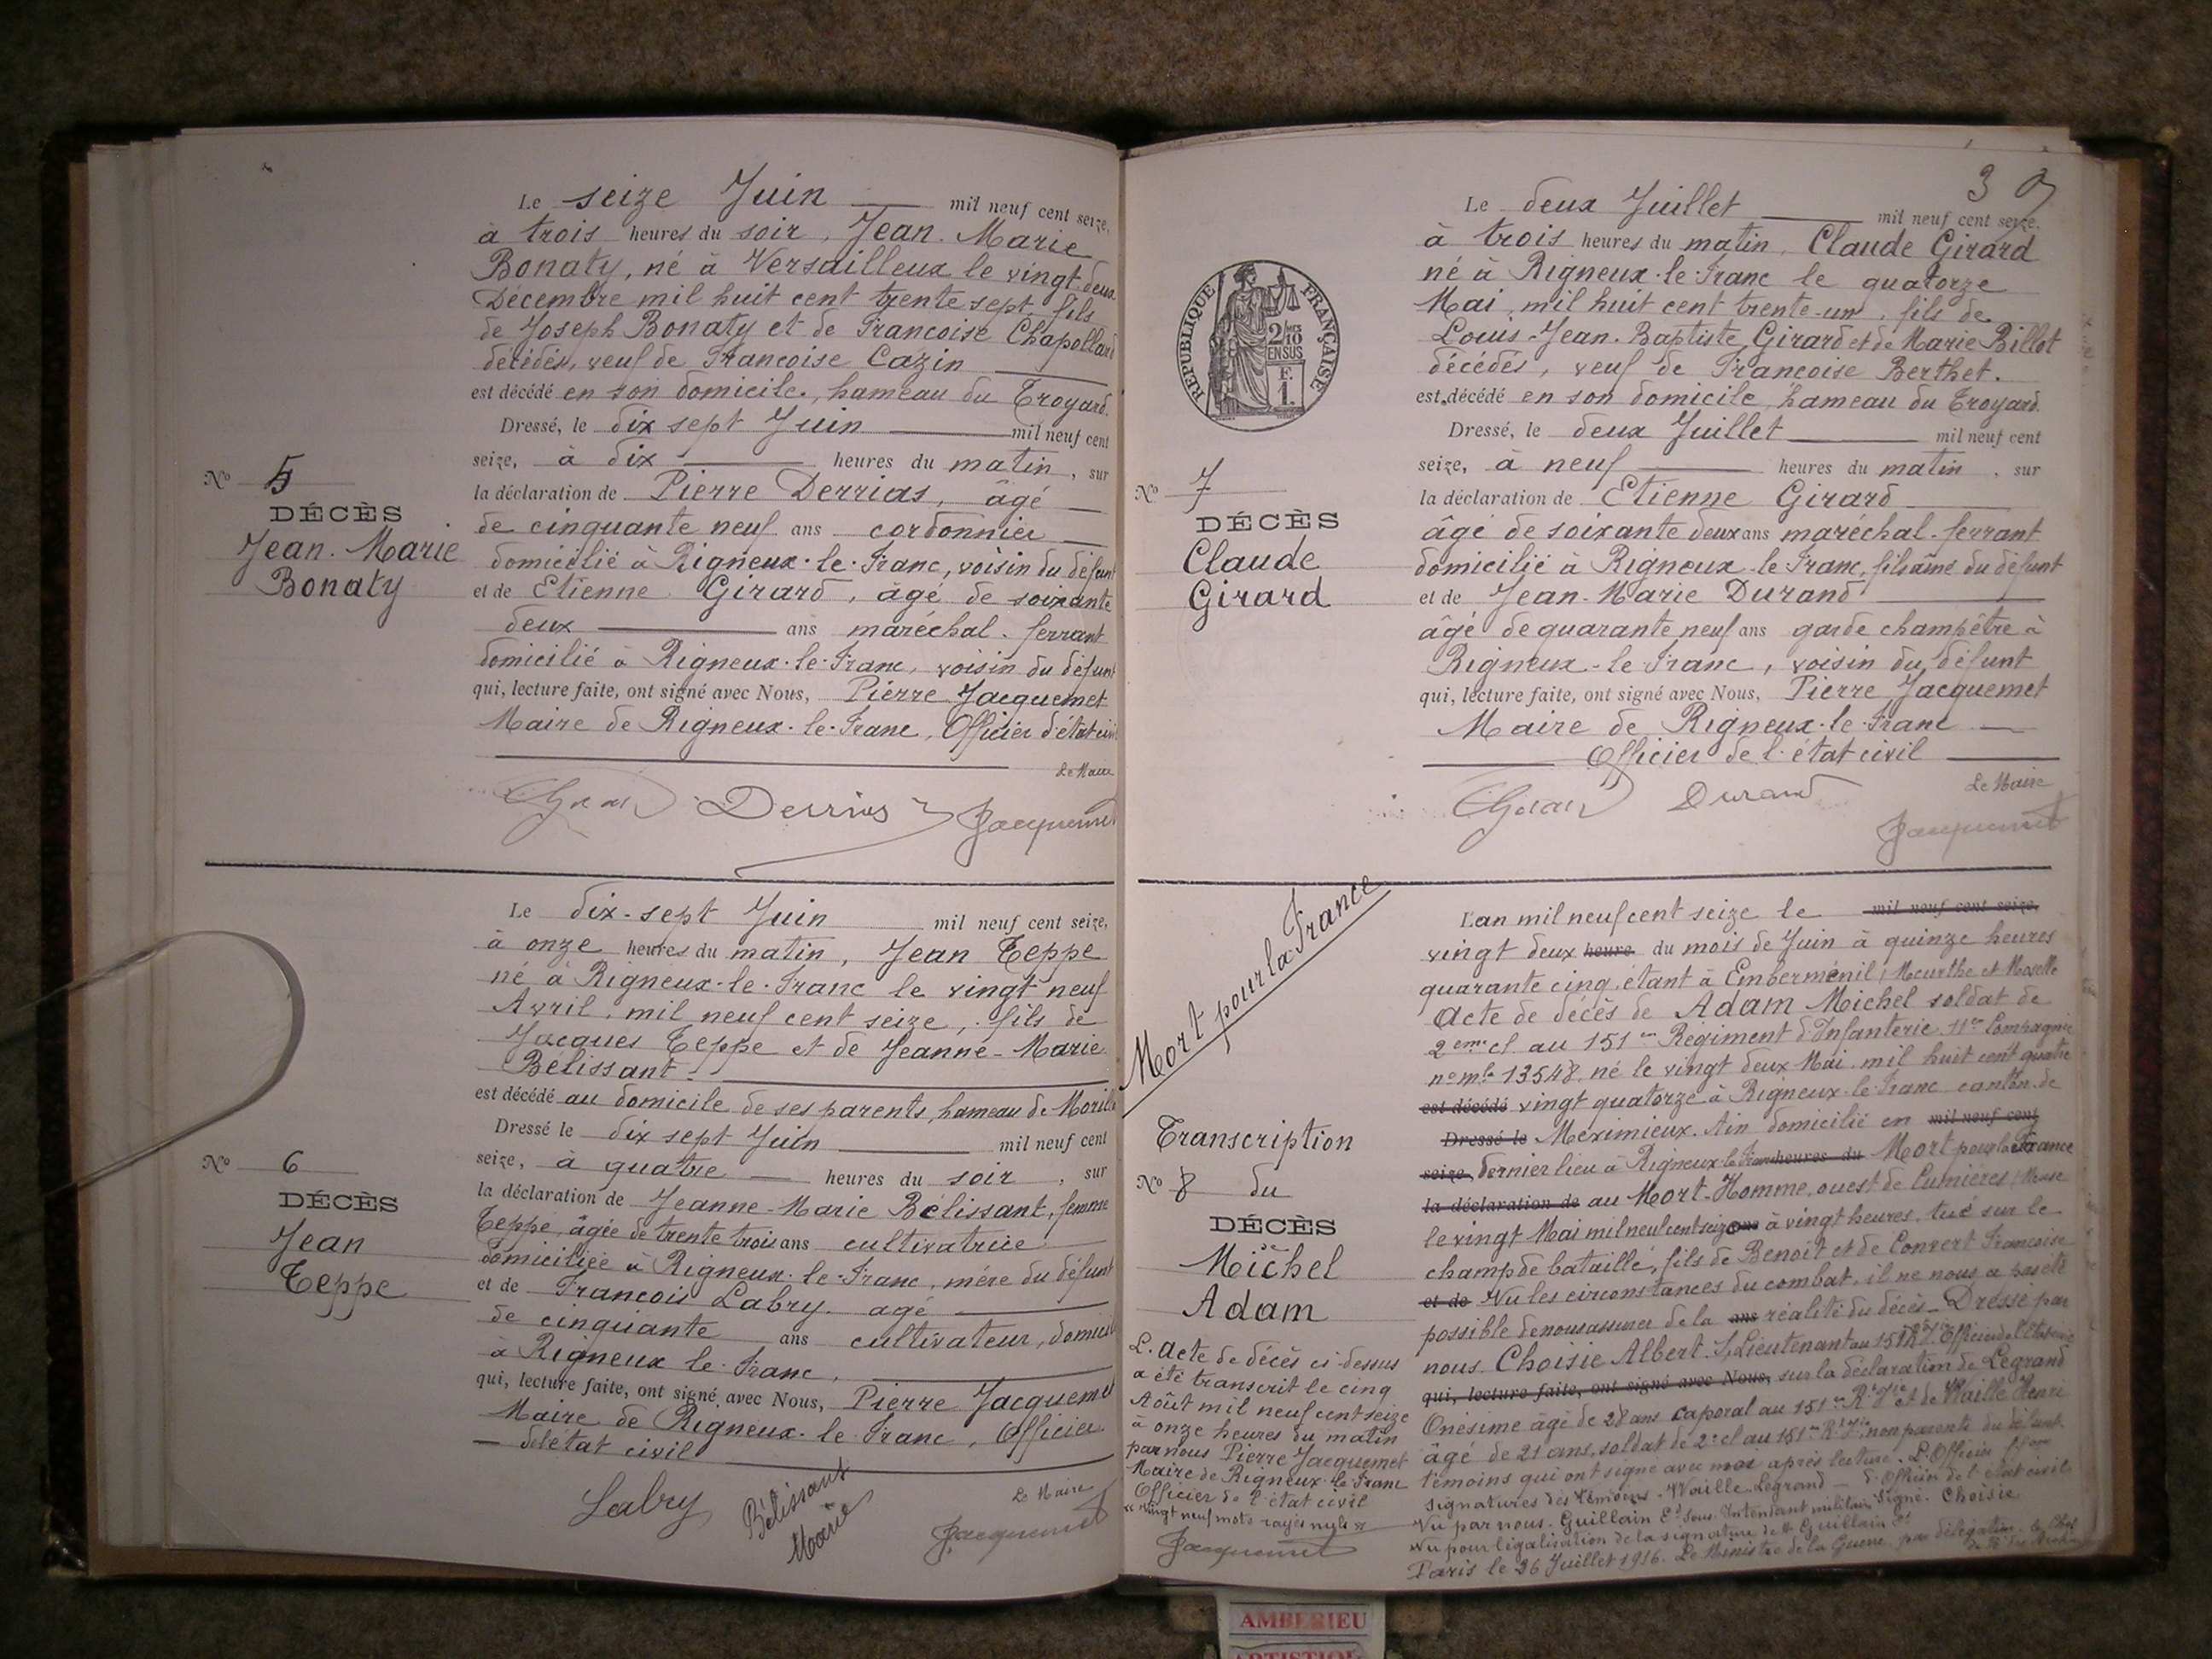 Le seize Juin mil neuf cent seize,
à trois heures du soir, Jean-Marie
Bonaty, né à Versailleux le vingt deux
Décembre mil huit cent trente sept, fils
de Joseph Bonaty et de Francoise Chapollard
décédés, veuf de Francoise Cazin
est décédé en son domicile, hameau du Croyard.
Dressé, le dix sept Juin mil neuf cent
seize, à dix heures du matin, sur
la déclaration de Pierre Derrias, âgé
de cinquante neuf ans cordonnier
domicilié à Rigneux-le-Franc, voisin du défunt
et de Etienne Girard, âgé de soixante
deux ans maréchal-ferrant
domicilié à Rigneux-le-Franc, voisin du défunt
qui, lecture faite, ont signé avec Nous, Pierre Jacquemet
Maire de Rigneux-le-Franc, Officier d'état civil
Le Maire
Derrias Jacquemet
No 5
DÉCÈS
Jean-Marie
Bonaty
Le dix-sept Juin mil neuf cent seize,
à onze heures du matin, Jean Teppe
né à Rigneux-le-Franc le vingt neuf
Avril, mil neuf cent seize, fils de
Jacques Teppe et de Jeanne-Marie
Bélissant.
est décédé au domicile de ses parents, hameau de
Dressé le dix sept Juin mil neuf cent
seize, à quatre heures du soir, sur
la déclaration de Jeanne-Marie Bélissant, femme
Teppe, âgée de trente trois ans cultivatrice
domiciliée à Rigneux-le-Franc, mère du défunt
et de Francois Labry. agé
de cinquante ans cultivateur,
à Rigneux le Franc,
qui, lecture faite, ont signé avec Nous, Pierre Jacquemet
Maire de Rigneux-le-Franc, Officier
de l'état civil
Le Maire
Labry Bélissant
Marie Jacquemet
No 6
DÉCÈS
Jean
Teppe
3
Le deux Juillet mil neuf cent seize.
à trois heures du matin, Claude Girard
né à Rigneux-le-Franc le quatorze
Mai, mil huit cent trente-un, fils de
Louis-Jean-Baptiste Girard et de Marie Billot
décédés, veuf de Francoise Berthet.
est décédé en son domicile, hameau du Croyard.
Dressé, le deux Juillet mil neuf cent
seize, à neuf heures du matin, sur
la déclaration de Etienne Girard
âgé de soixante deux ans maréchal-ferrant
domicilié à Rigneux-le-Franc, fils aîné du défunt
et de Jean-Marie Durand
âgé de quarante neuf ans garde champêtre à
Rigneux-le-Franc, voisin du défunt
qui, lecture faite, ont signé avec Nous, Pierre Jacquemet
Maire de Rigneux-le-Franc
Officier de l'état civil
Le Maire
Durand
Jacquemet
RÉPUBLIQUE FRANÇAISE
2/10
EN SUS
F.
1.
No 7
DÉCÈS
Claude
Girard
Mort pour la France
Transcription
No 8 du
DÉCÈS
Michel
Adam
L'acte de décès ci-dessus
a été transcrit le cinq
Août mil neuf cent seize
à onze heures du matin
par nous Pierre Jacquemet
Maire de Rigneux-le-Franc
Officier de l'état civil
vingt neuf mots rayés nuls
Jacquemet
L'an mil neuf cent seize le mil neuf cent seize,
vingt deux heure du mois de Juin à quinze heures
quarante cinq, étant à Emberménil, Meurthe et Moselle
Acte de décès de Adam Michel soldat de
2eme cl au 151me Régiment d'Infanterie 11me Compagnie
no mle 13548 né le vingt deux Mai mil huit cent quatre
est décédé vingt quatorze à Rigneux-le-Franc canton de
Dressé le Meximieux. Ain domicilié en mil neuf cent
seize, dernier lieu à Rigneux le Franc heures du Mort pour la France
la déclaration de au Mort-Homme, ouest de Cumières, Meuse
le vingt Mai mil neuf cent seize à vingt heures, tué sur le
champ de bataille, fils de Benoit et de Convert Francoise
et de Vu les circonstances du combat, il ne nous a pas été
possible de nous assurer de la ans réalité du décès. Dressé par
nous Choisie Albert. S/Lieutenant au 151e Officier de l'état civil
qui, lecture faite, ont signé avec Nous, sur la déclaration de Legrand
Onésime âgé de 28 ans caporal au 151me et de Waille Henri
âgé de 21 ans, soldat de 2e cl au 151me non parents du défunt
témoins qui ont signé avec moi après lecture. L'Officier
Signatures des témoins. Waille. Legrand L'Officier de l'état civil
Vu par nous. Guillain Sous Intendant militaire Signé. Choisie
Vu pour légalisation de la signature de M. Guillain
Paris le 26 Juillet 1916. Le Ministre de la Guerre, par délégation.
AMBERIEU